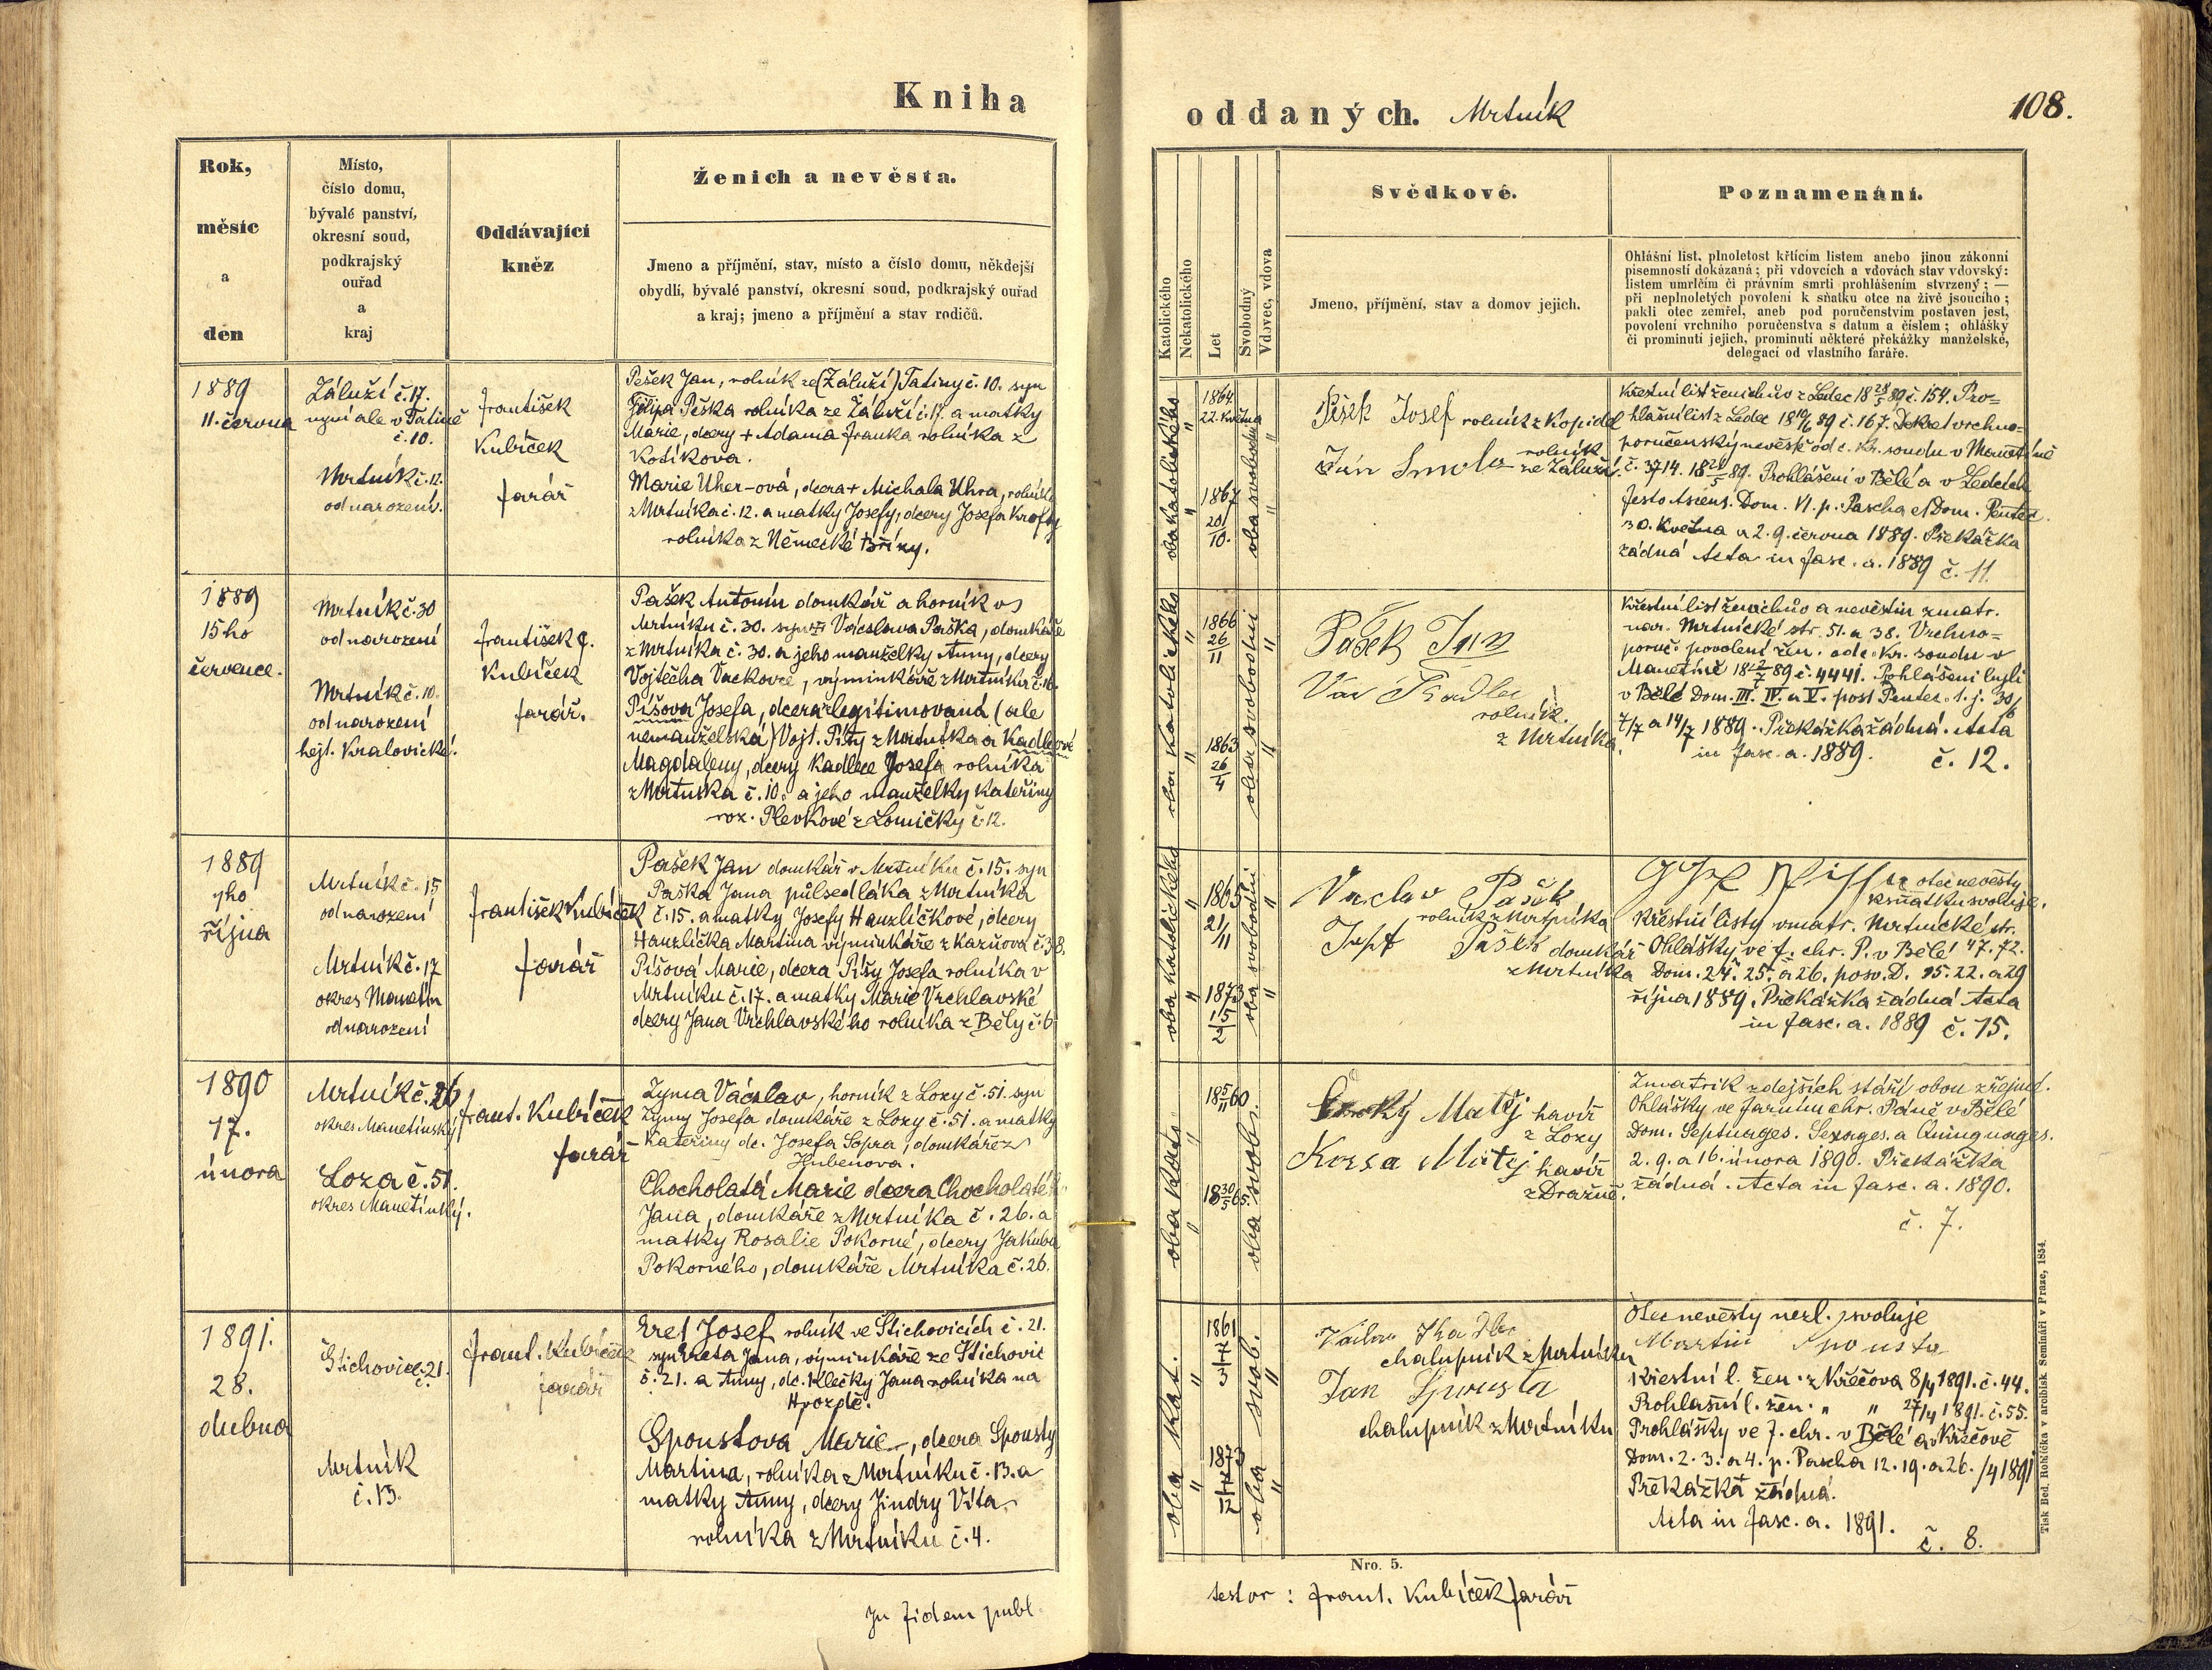 Kniha
Rok,
měsíc
a
den
Místo,
číslo domu,
bývalé panství,
okresní soud,
podkrajský
ouřad
a
kraj
Oddávající
kněz
Ženich a nevěsta.
Jmeno a příjmění, stav, místo a číslo domu, někdejší
obydlí, bývalé panství, okresní soud, podkrajský ouřad
a kraj; jmeno a příjmění a stav rodičů.
1889
11. června
Záluží č. 17.
nyní ale v Tatině
č. 10.
Mrtník č. 12.
od narození.
František
Kubíček
farář
Pešek Jan, rolník ze (Záluží) Tatiny č. 10. syn
Filipa Peška rolníka ze Záluží č. 17. a matky
Marie, dcery + Adama Franka rolníka z
Kotíkova.
Marie Uher-ová, dcera + Michala Uhra, rolníka
z Mrtníka č. 12. a matky Josefy, dcery Josefa Krofty
rolníka z Německé Břízy.
1889
15ho
července.
Mrtník č. 30
od narození
Mrtník č. 10.
od narození
hejt. Kralovické.
František
Kubíček
farář.
Pašek Antonín domkář a horník v
Mrtníku č. 30. syn Václava Paška, domkáře
z Mrtníka č. 30. a jeho manželky Anny, dcery
Vojtěcha Vackovce, výminkáře z Mrtníka č. 16.
Píšova Josefa, dcera legitimovaná (ale
nemanželská) Vojt. Píšy z Mrtníka a Kadlecové
Magdaleny, dcery Kadlece Josefa rolníka
z Mrtníka č. 10. a jeho manželky Kateřiny
roz. Plevkové z Lomičky č. 12.
1889
října
Mrtník č. 15
od narození
Mrtník č. 17
okres Manetín
od narození
František Kubíček
farář
Pašek Jan domkář v Mrtníku č. 15. syn
Paška Jana půlsedláka z Mrtníka
č. 15. a matky Josefy Hanzlíčkové, dcery
Hanzlíčka Martina výminkáře z Kazňova č. 38.
Píšová Marie, dcera Píšy Josefa rolníka v
Mrtníku č. 17. a matky Marie Vrchlavské
dcery Jana Vrchlavského rolníka z Běly č. 6
1890
17.
února
Mrtník č. 26
okres Manetinský
Loza č. 51.
okres Manetínský.
Frant. Kubíček
farář
Zyma Václav, horník z Lozy č. 51. syn
Zymy Josefa domkáře z Lozy č. 51. a matky
Kateřiny dc. Josefa Sopra, domkáře z
Hubenova.
Chocholatá Marie dcera Chocholatého
Jana, domkáře z Mrtníka č. 26. a
matky Rosalie Pokorné, dcery Jakuba
Pokorného, domkáře Mrtníka č. 26.
1891.
28.
dubna
Štichovice č. 21.
Mrtník
č. 13.
Frant. Kubíček
farář
Eret Josef rolník ve Štichovicích č. 21.
syn Ereta Jana, výminkáře ze Štichovic
č. 21. a Anny, dc. Klečky Jana rolníka na
Hvozdě.
Spoustova Marie, dcera Spousty
Martina, rolníka z Mrtníku č. 13. a
matky Anny, dcery Jindry Víta
rolníka z Mrtníku č. 4.
In fidem publ.
oddaných. Mrtník
108.
Katolického
Nekatolického
Let
Svobodný
Vdovec, vdova
Svědkové.
Jmeno, příjmění, stav a domov jejich.
Poznamenání.
Ohlášní list, plnoletost křtícím listem anebo jinou zákonní
písemností dokázaná; při vdovcích a vdovách stav vdovský:
listem umrlčím či právním smrti prohlášením stvrzený; —
při neplnoletých povolení k sňatku otce na živě jsoucího;
pakli otec zemřel, aneb pod poručenstvím postaven jest,
povolení vrchního poručenstva s datum a číslem; ohlášky
či prominutí jejich, prominutí některé překážky manželské,
delegací od vlastního faráře.
oba katolického
1864
22. května
1867
20/10.
oba svobodní
Pešek Josef rolník z Kopidel
Ján Smola rolník
ze Záluží.
Křestní list ženichův z Ledec 18 28/5 89 č. 154. Pro-
hlašní list z Ledec 18 10/6 89 č. 167. Dekret vrchno-
poručenský nevěstě od c. kr. soudu v Manetíně
č. 3714. 18 28/5 89. Prohlášení v Bělé a v Ledcích
festo Ascens. Dom. VI. p. Pascha et Dom. Pentec.
30. Května a 2. 9. června 1889. Překážka
žádná Acta in fasc. a. 1889 č. 11.
oba katolického
1866
26/11
1863
26/4
oba svobodní
Pašek Jan
Kadlec
rolník.
z Mrtníka.
Křestní list ženichův a nevěstin z matr.
nar. Mrtnické str. 51. a 38. Vrchno-
poruč. povolení žen. od c. kr. soudu v
Manetíně 18 2/7 89 č. 4441. Pohlášeni byli
v Bělé Dom. III. IV. a V. post Pentec. t. j. 30/6
7/7 a 14/7 1889. Překážka žádná. Acta
in fasc. a. 1889. č. 12.
oba katolického
1865
21/11
1873
15/2
oba svobodní
Vaclav Pašek
rolník z Mrtníka
Josef Pašek domkář
z Mrtníka
otec nevěsty
k sňatku svoluje.
Křestní listy v matr. Mrtnické str.
Ohlášky ve f. chr. P. v Bělé 47. 72.
Dom. 24. 25. a 26. posv. D. 15. 22. a 29
října 1889. Překážka žádná Acta
in fasc. a. 1889 č. 15.
oba kato.
18 5/11 60
18 30/5 65.
oba svob.
Matěj havíř
z Lozy
Korsa Matěj havíř
z Dražně.
Z matrik zdejších stáří obou zřejmé.
Ohlášky ve farním chr. Páně v Bělé
Dom. Septuages. Sexages. a Quinquages.
2. 9. a 16. února 1890. Překážka
žádná. Acta in fasc. a. 1890.
č. 7.
oba kat.
1861
1873
oba svob.
Václav Kadlec
chalupník z Mrtníku
Jan Spousta
chalupník z Mrtníku
Otec nevěsty nezl. svoluje
Martin Spousta
Křestní l. žen. z Křečova 8/4 1891. č. 44.
Prohlašní l. žen. " " 27/4 1891. č. 55.
Prohlášky ve f. chr. v Bělé a v Křečově
Dom. 2. 3. a 4. p. Pascha 12. 19. a 26. /4 1891
Překážka žádná.
Acta in fasc. a. 1891.
č. 8.
Tisk Bed. Rohlíčka v arcibisk. Semináři v Praze, 1854.
Nro. 5.
testor : Frant. Kubíček farář